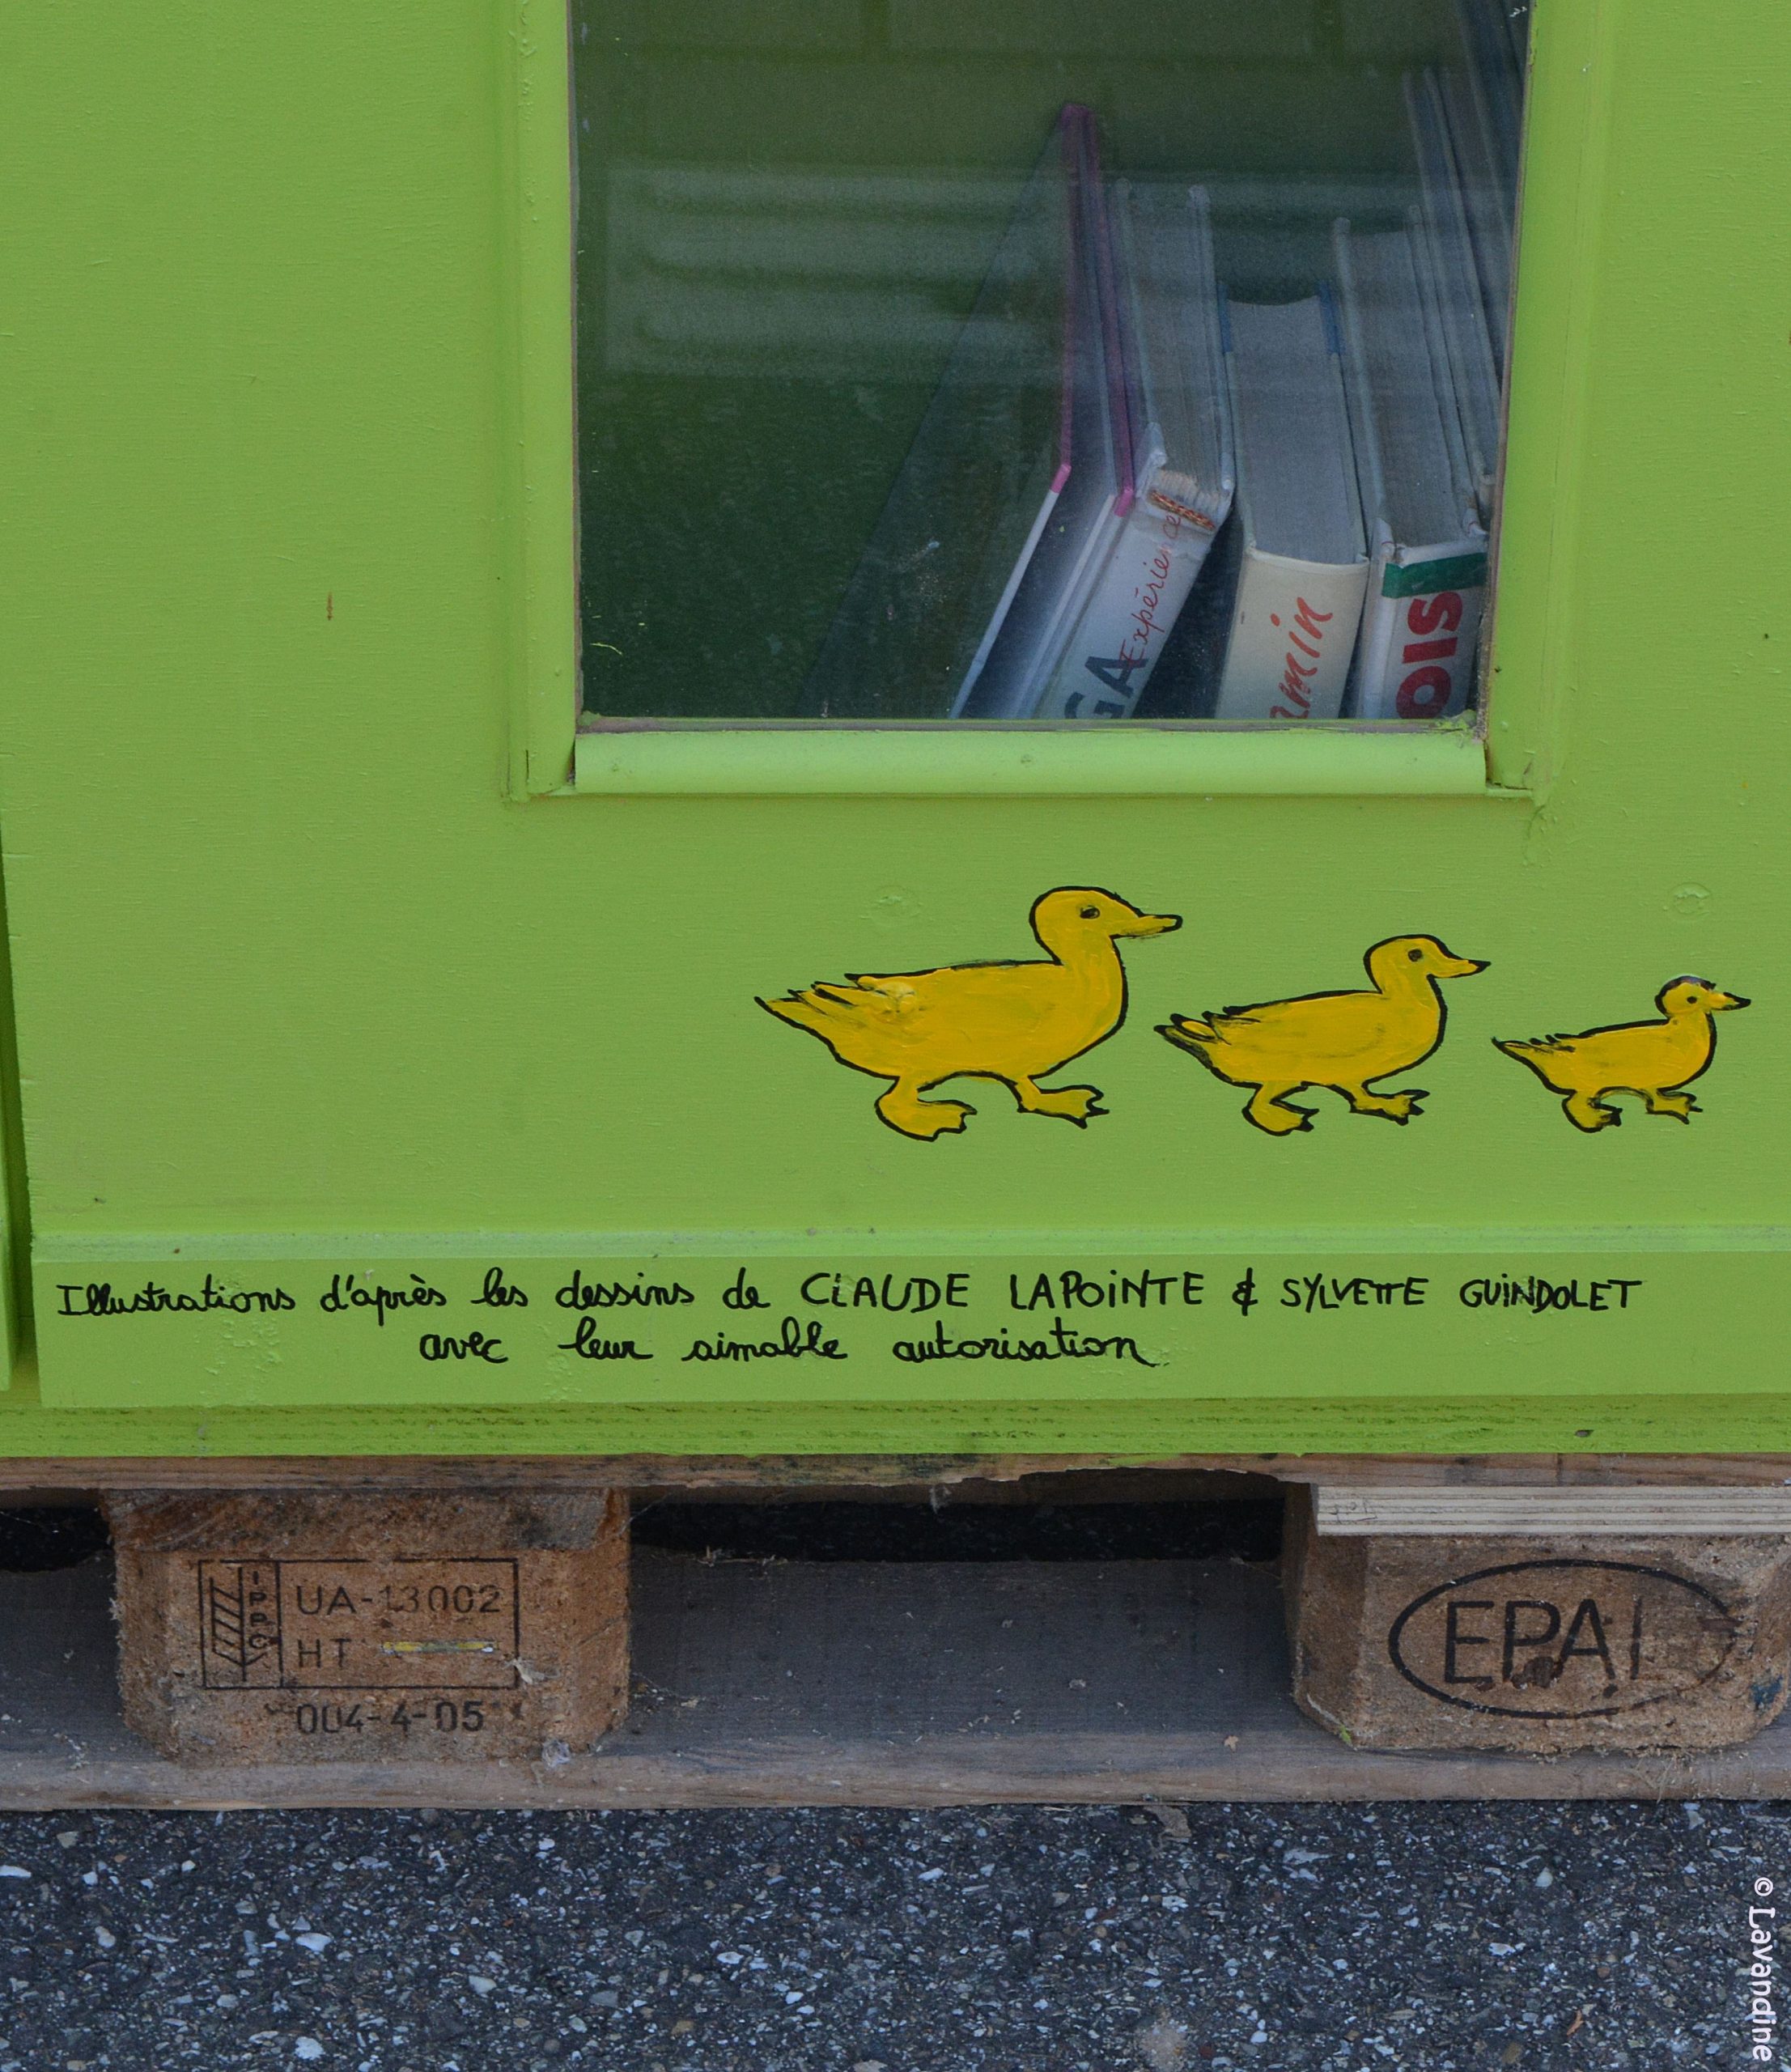 GA Expérience
amin
OIS
Illustrations d'après les dessins de CLAUDE LAPOINTE & SYLVETTE GUINDOLET
avec leur aimable autorisation
IPPC
UA-13002
HT
004-4-05
EPAL
© Lavandine